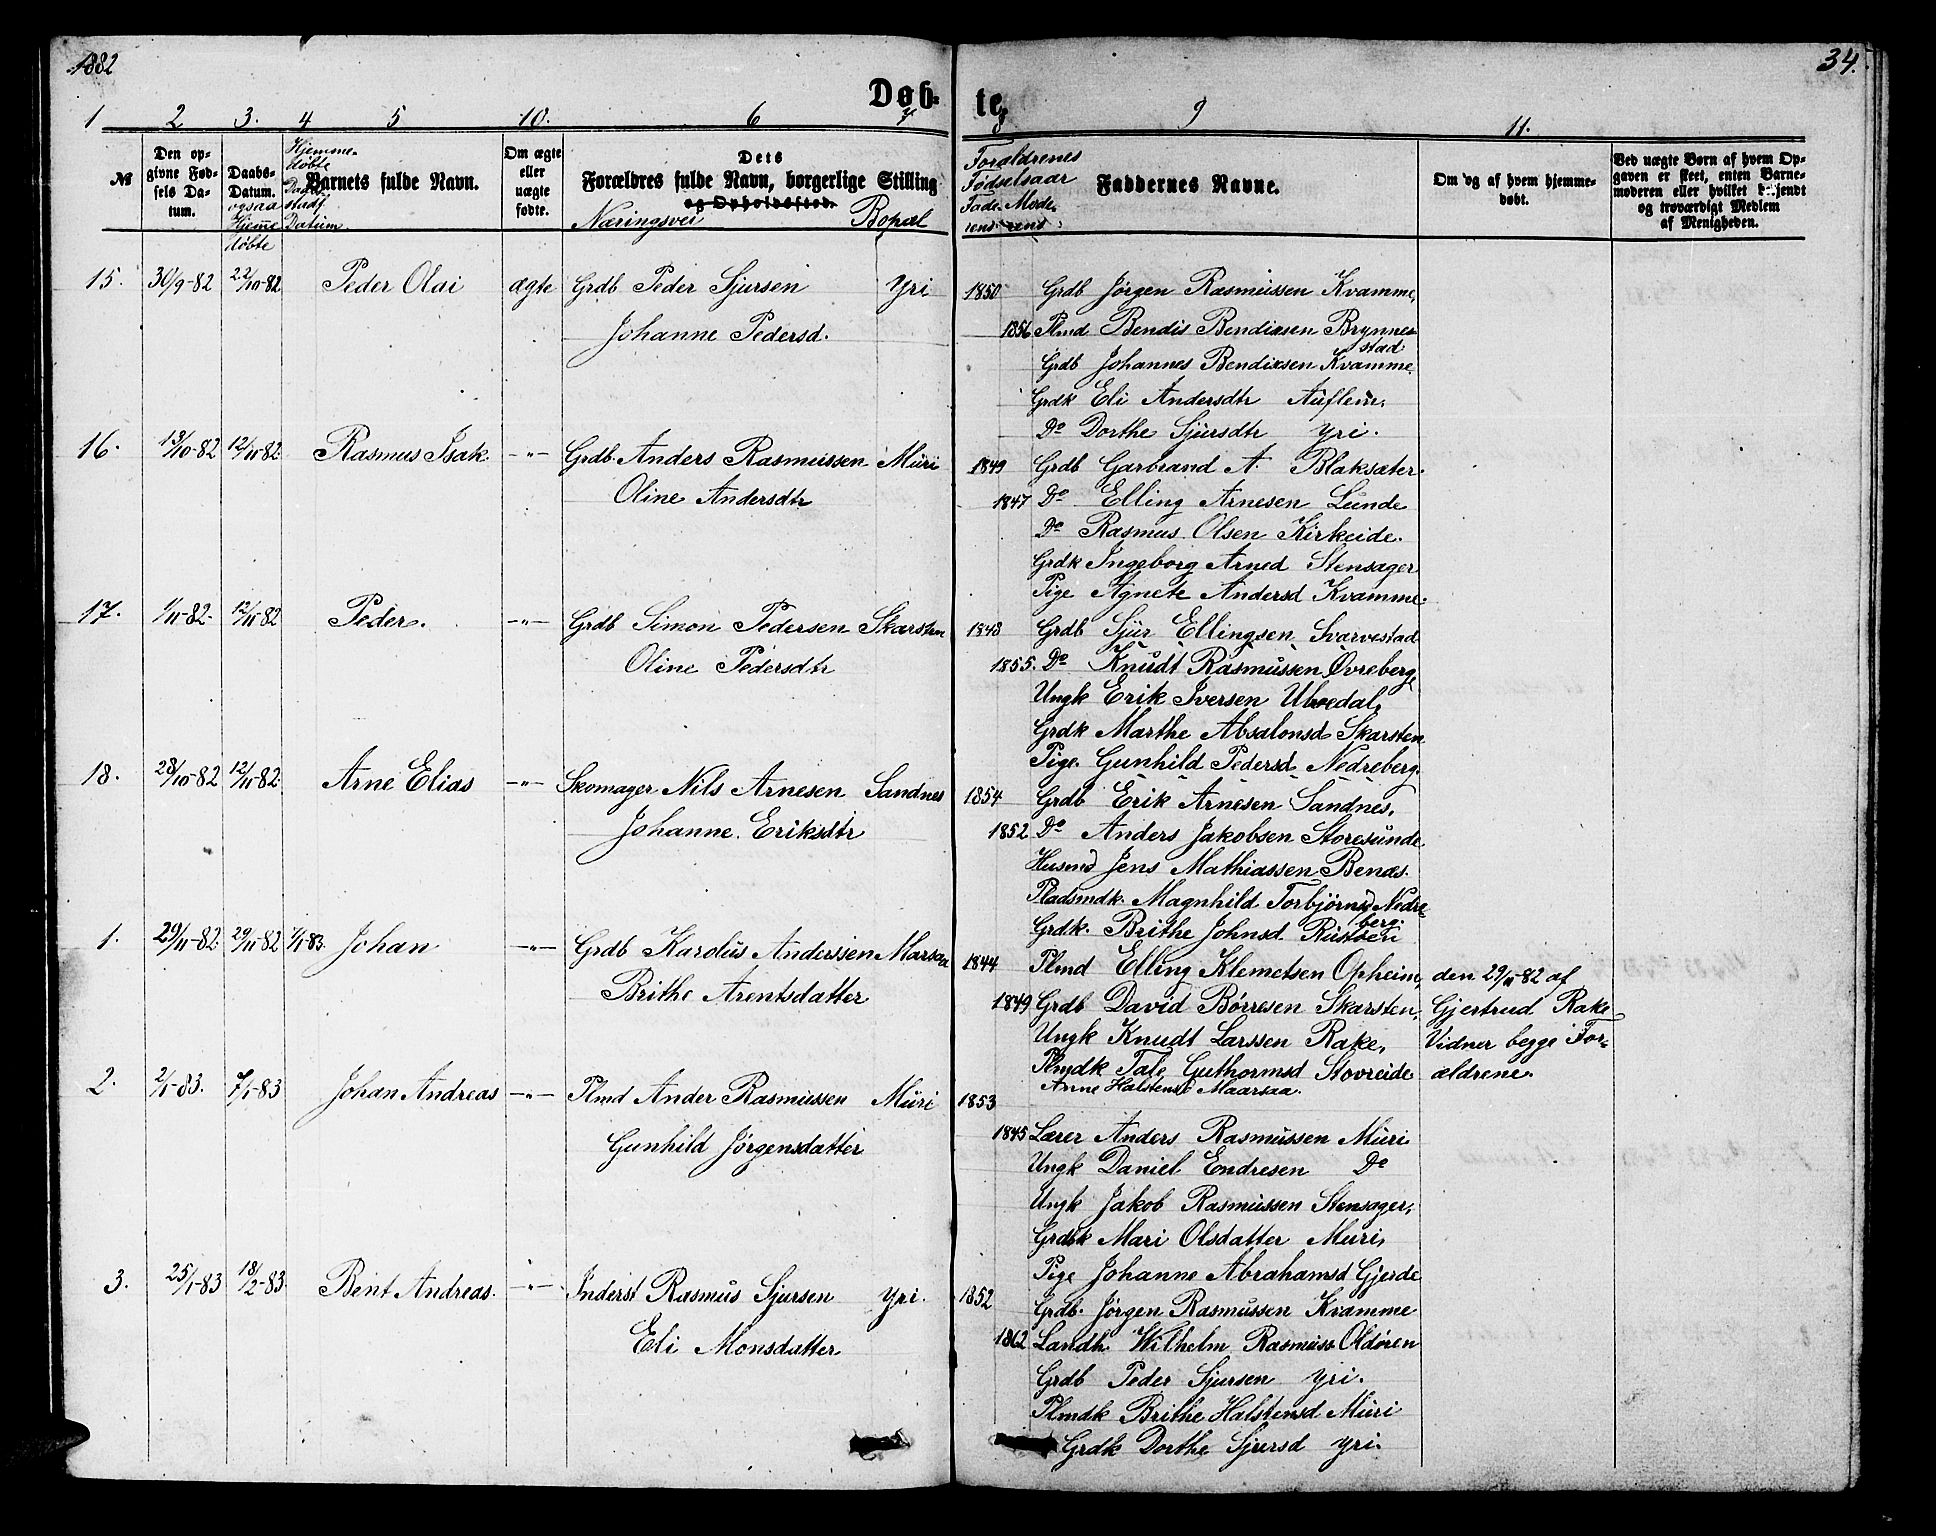 1882
34.
Døb-
te.
1 2 3. 4 5 10. 6 7 8 9 11.
№
Den opgivne Fødsels Datum.
Daabs-Datum. ogsaa Hjemme døbte
Hjemmedøbte Daabs stadf Datum
Barnets fulde Navn.
Om ægte eller uægte fødte.
Dets
Forældres fulde Navn, borgerlige Stilling
og Opholdssted.
Næringsvei Bopæl
Forældrenes Fødselsaar
Fade rens Mode rens
Faddernes Navne.
Om og af hvem hjemmedøbt.
Ved uægte Børn af hvem Opgaven er skeet, enten Barnemoderen eller hvilket bekjendt og troværdigt Medlem af Menigheden.
15. 30/9-82 22/10-82 Peder Olai ægte Grdb Peder Sjursen Yri 1850 Grdb Jørgen Rasmussen Kvamme,
Johanne Pedersd. 1856 Plmd Bendis Bendixsen Brynnestad
Grdb Johannes Bendixsen Kvamme.
Grdk Eli Andersdtr Auflem.
Do Dorthe Sjursdtr Yri.
16. 13/10-82 12/11-82 Rasmus Isak -"- Grdb. Anders Rasmussen Muri 1849 Grdb Garbrand A. Blaksæter.
Oline Andersdtr 1847 Do Elling Arnesen Lunde
Do Rasmus Olsen Kirkeide.
Grdk Ingeborg Arned Stensager
Pige Agnete Andersd Kvamme.
17. 1/11-82. 12/11-82 Peder. -"- Grdb Simon Pedersen Skarsten 1843 Grdb Sjur Ellingsen Svarvestad
Oline Pedersdtr 1855. Do Knudt Rasmussen Øvreberg,
Ungk Erik Iversen Ulvedal,
Grdk Marthe Absalonsd Skarsten
Pige. Gunhild Pedersd. Nedreberg.
18. 28/10-82 12/11-82. Arne Elias -"- Skomager Nils Arnesen Sandnes 1854 Grdb Erik Arnesen Sandnes,
Johanne Eriksdtr 1852 Do Anders Jakobsen Storesunde.
Husmd Jens Mathiassen Benæs.
Pladsmdk. Magnhild Torbjørnsd Nedreberg.
Grdk. Brithe Johnsd. Rustøen
1. 29/11-82. 29/11-82 7/1-83. Johan -"- Grdb Karolus Anderssen Marsaa 1844 Plmd Elling Klemetsen Opheim, den 29/11-82 af
Brithe Arentsdatter 1849 Grdb David Børresen Skarsten, Gjertrud Rake
Ungk Knudt Larssen Rake, Vidner begge For-
Plmdk Tale Guthormsd Stovreide ældrene.
Anne Halstensd Maarsaa.
2. 2/1-83. 7/1-83 Johan Andreas -"- Plmd Ander Rasmussen Muri 1853
Gunhild Jørgensdatter 1845 Lærer Anders Rasmussen Muri
Ungk Daniel Endresen Do
Ungk Jakob Rasmussen Stensager,
Grdbk Mari Olsdatter Muri,
Pige Johanne Abrahamsd Gjerde
3. 25/1-83 18/2-83. Bent Andreas. -"- Inderst Rasmus Sjursen Yri. 1852 Grdb. Jørgen Rasmussen Kvamme
Eli Monsdatter 1862 Landh. Wilhelm Rasmuss Oldøren
Grdb Peder Sjursen Yri.
Plmdk Brithe Halstensd Muri
Grdk Dorthe Sjursd Yri.